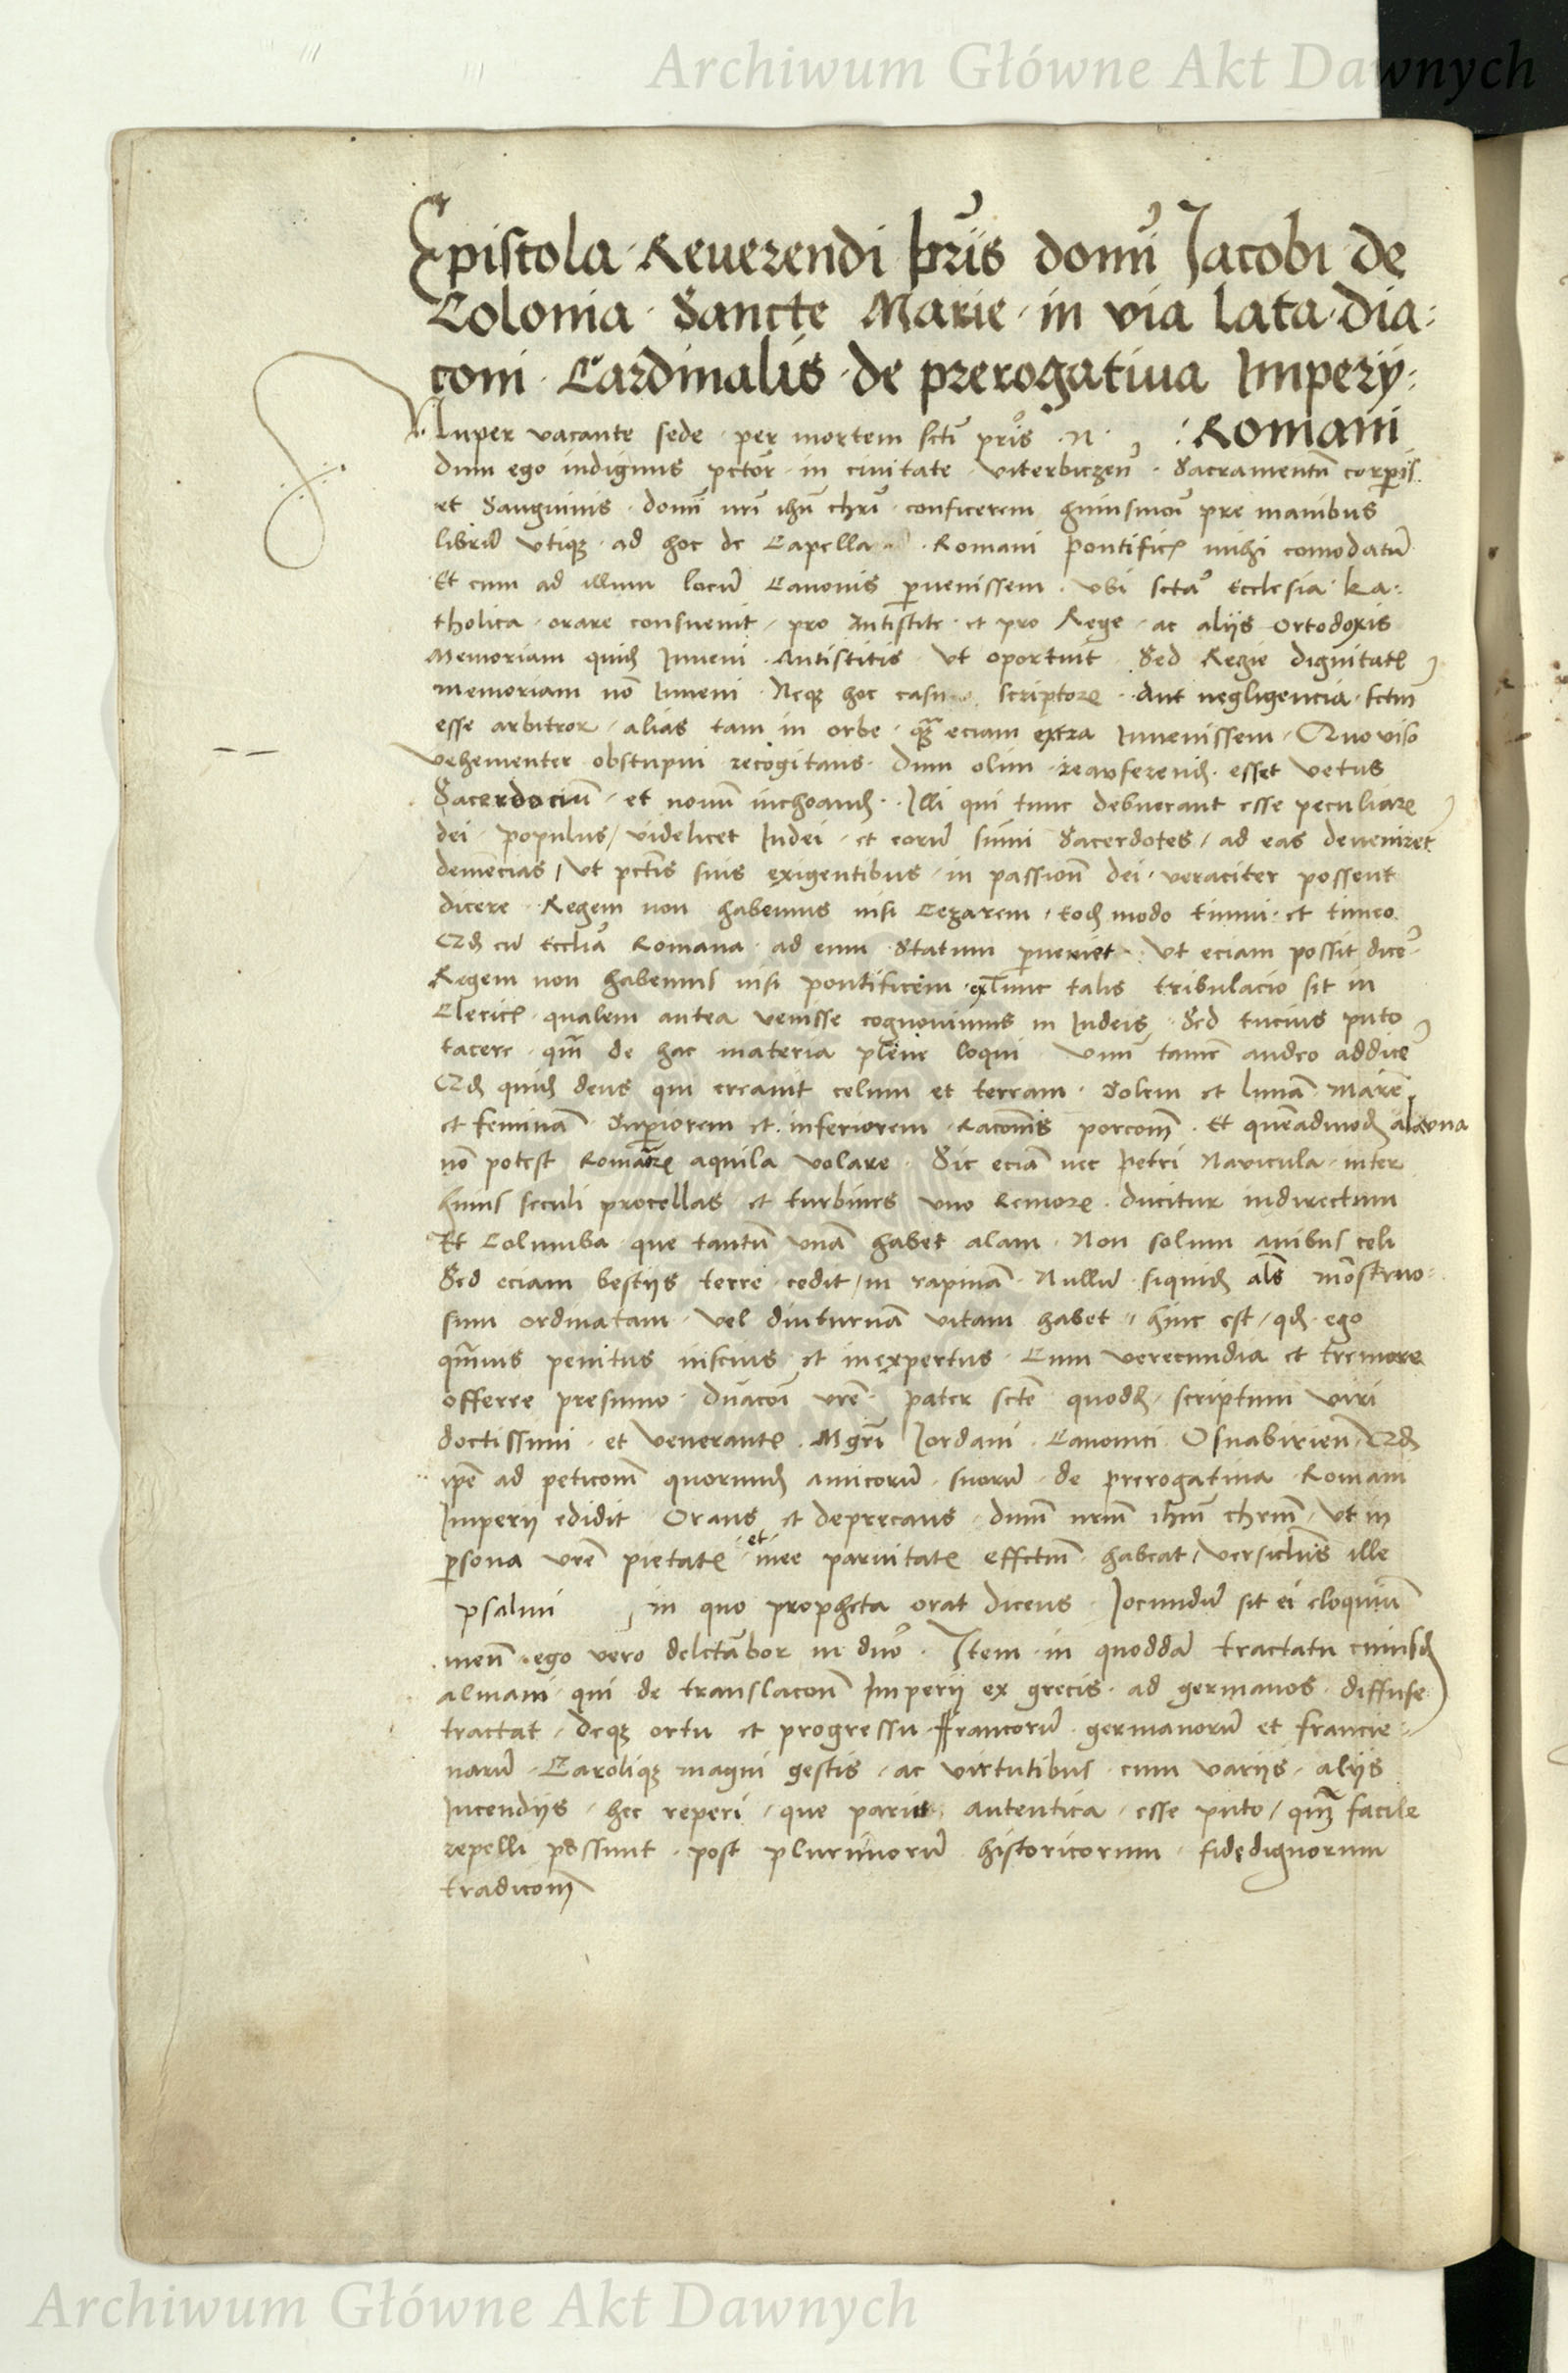 Archiwum Główne Akt Dawnych
Epistola Reverendi pr̃is domı̃ Jacobi de
Colonia Sancte Marie in via lata dia:
coni Cardinalis de prerogativa Imperij:
:Romani
Nuper vacante sede per mortem sctĩ pr̃is N
dum ego indignus pctõr in civitate viterbiczen̄ Sacramentũ corꝑis
et Sanguinis domı̃ nr̃i ihũ chrĩ conficerem huiusmoĩ pre manibus
librũ utiqꝫ ad hoc de Capella Romani pontificꝭ mihi comodatũ
Et cum ad illum locũ Canonis ꝑvenissem ubi sctã Ecclesia ka:
tholica orare consuevit pro Antistite et pro Rege ac alijs ortodoxis
Memoriam quid̃ Inveni Antistitis ut oportuit Sed Regie dignitatꝭ
memoriam nõ Inveni Neqꝫ hoc casu scriptorꝭ Aut negligencia fctm̃
esse arbitror alias tam in orbe qꝫ̃ eciam extra Invenissem Quo viso
vehementer obstupui recogitans dum olim reauferend̃ esset vetus
Sacerdociũ et novũ inchoand̃ Illi qui tunc debuerant esse peculiarꝭ
dei populus/ videlicet Iudei et eorũ sũmi Sacerdotes/ ad eas devenirẽt
demẽcias/ ut pctĩs suis exigentibus in passioñ dei veraciter possent
dicere Regem non habemus nisi Cezarem eod̃ modo timui et timeo
Qd̃ cũ Eccliã Romana ad eum Statum ꝑveniet ut eciam possit dicẽ
Regem non habemus nisi pontificem extunc talis tribulacio sit in
Clericꝭ qualem antea venisse cognovimus in Iudeis Sed tucius puto
tacere qm̃ de hac materia plene loqui Unũ tamẽ audeo addicẽ
Qd̃ quid̃ deus qui creavit celum et terram Solem et lunã Marẽ
et feminã Suꝑiorem et inferiorem Racoñis porcom̃ Et quẽadmod̃ ala una
nõ potest Romãrꝭ aquila volare Sic eciã nec petri Navicula inter
huius seculi procellas et turbines uno Remorꝭ ducitur indirectum
Et Columba que tantũ unã habet alam Non solum avibus celi
Sed eciam bestijs terre cedit/ in rapinã Nullũ siquid̃ als̃ mõstruo:
sum ordinatam vel diuturnã vitam habet hinc est/ qd̃ ego
qm̃vis penitus inscius et inexpertus Cum verecundia et tremore
offerre presumo dvacoĩ vrẽ pater sctẽ quodd̃ scriptum viri
doctissimi et venerantꝭ Mgrĩ Jordani Canonici Osnabirieñ Qd̃
ipẽ ad peticom̃ quorund̃ amicorũ suorũ de prerogativa Romani
Imperij edidit Orans et deprecans dnm̃ nrm̃ ihm̃ chrm̃ ut in
ꝑsona vrẽ pietatꝭ et mee parvitatꝭ effctm̃ habeat/ versiculus ille
psalmi in quo propheta orat dicens Jocundũ sit ei eloquiũ
meũ ego vero delctãbor in dñō Item in quoddã tractatu cuiusd̃
almani qui de translacoñ Imperij ex grecis ad germanos diffuse
tractat deqꝫ ortu et progressu ffrancorũ germanorũ et francie:
narũ Caroliqꝫ magni gestis ac virtutibus cum varijs alijs
Incendijs hec reperi que autentica esse puto/ qm̃ facile
repelli possunt post plurimorũ historicorum fidedignorum
tradicom̃
Archiwum Główne Akt Dawnych